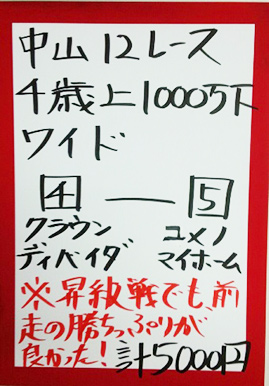 中山12レース
4歳上1000万下
ワイド
4 — 5
クラウン ユメノ
ディバイダ マイホーム
※昇級戦でも前
走の勝ちっぷりが
良かった!計5000円